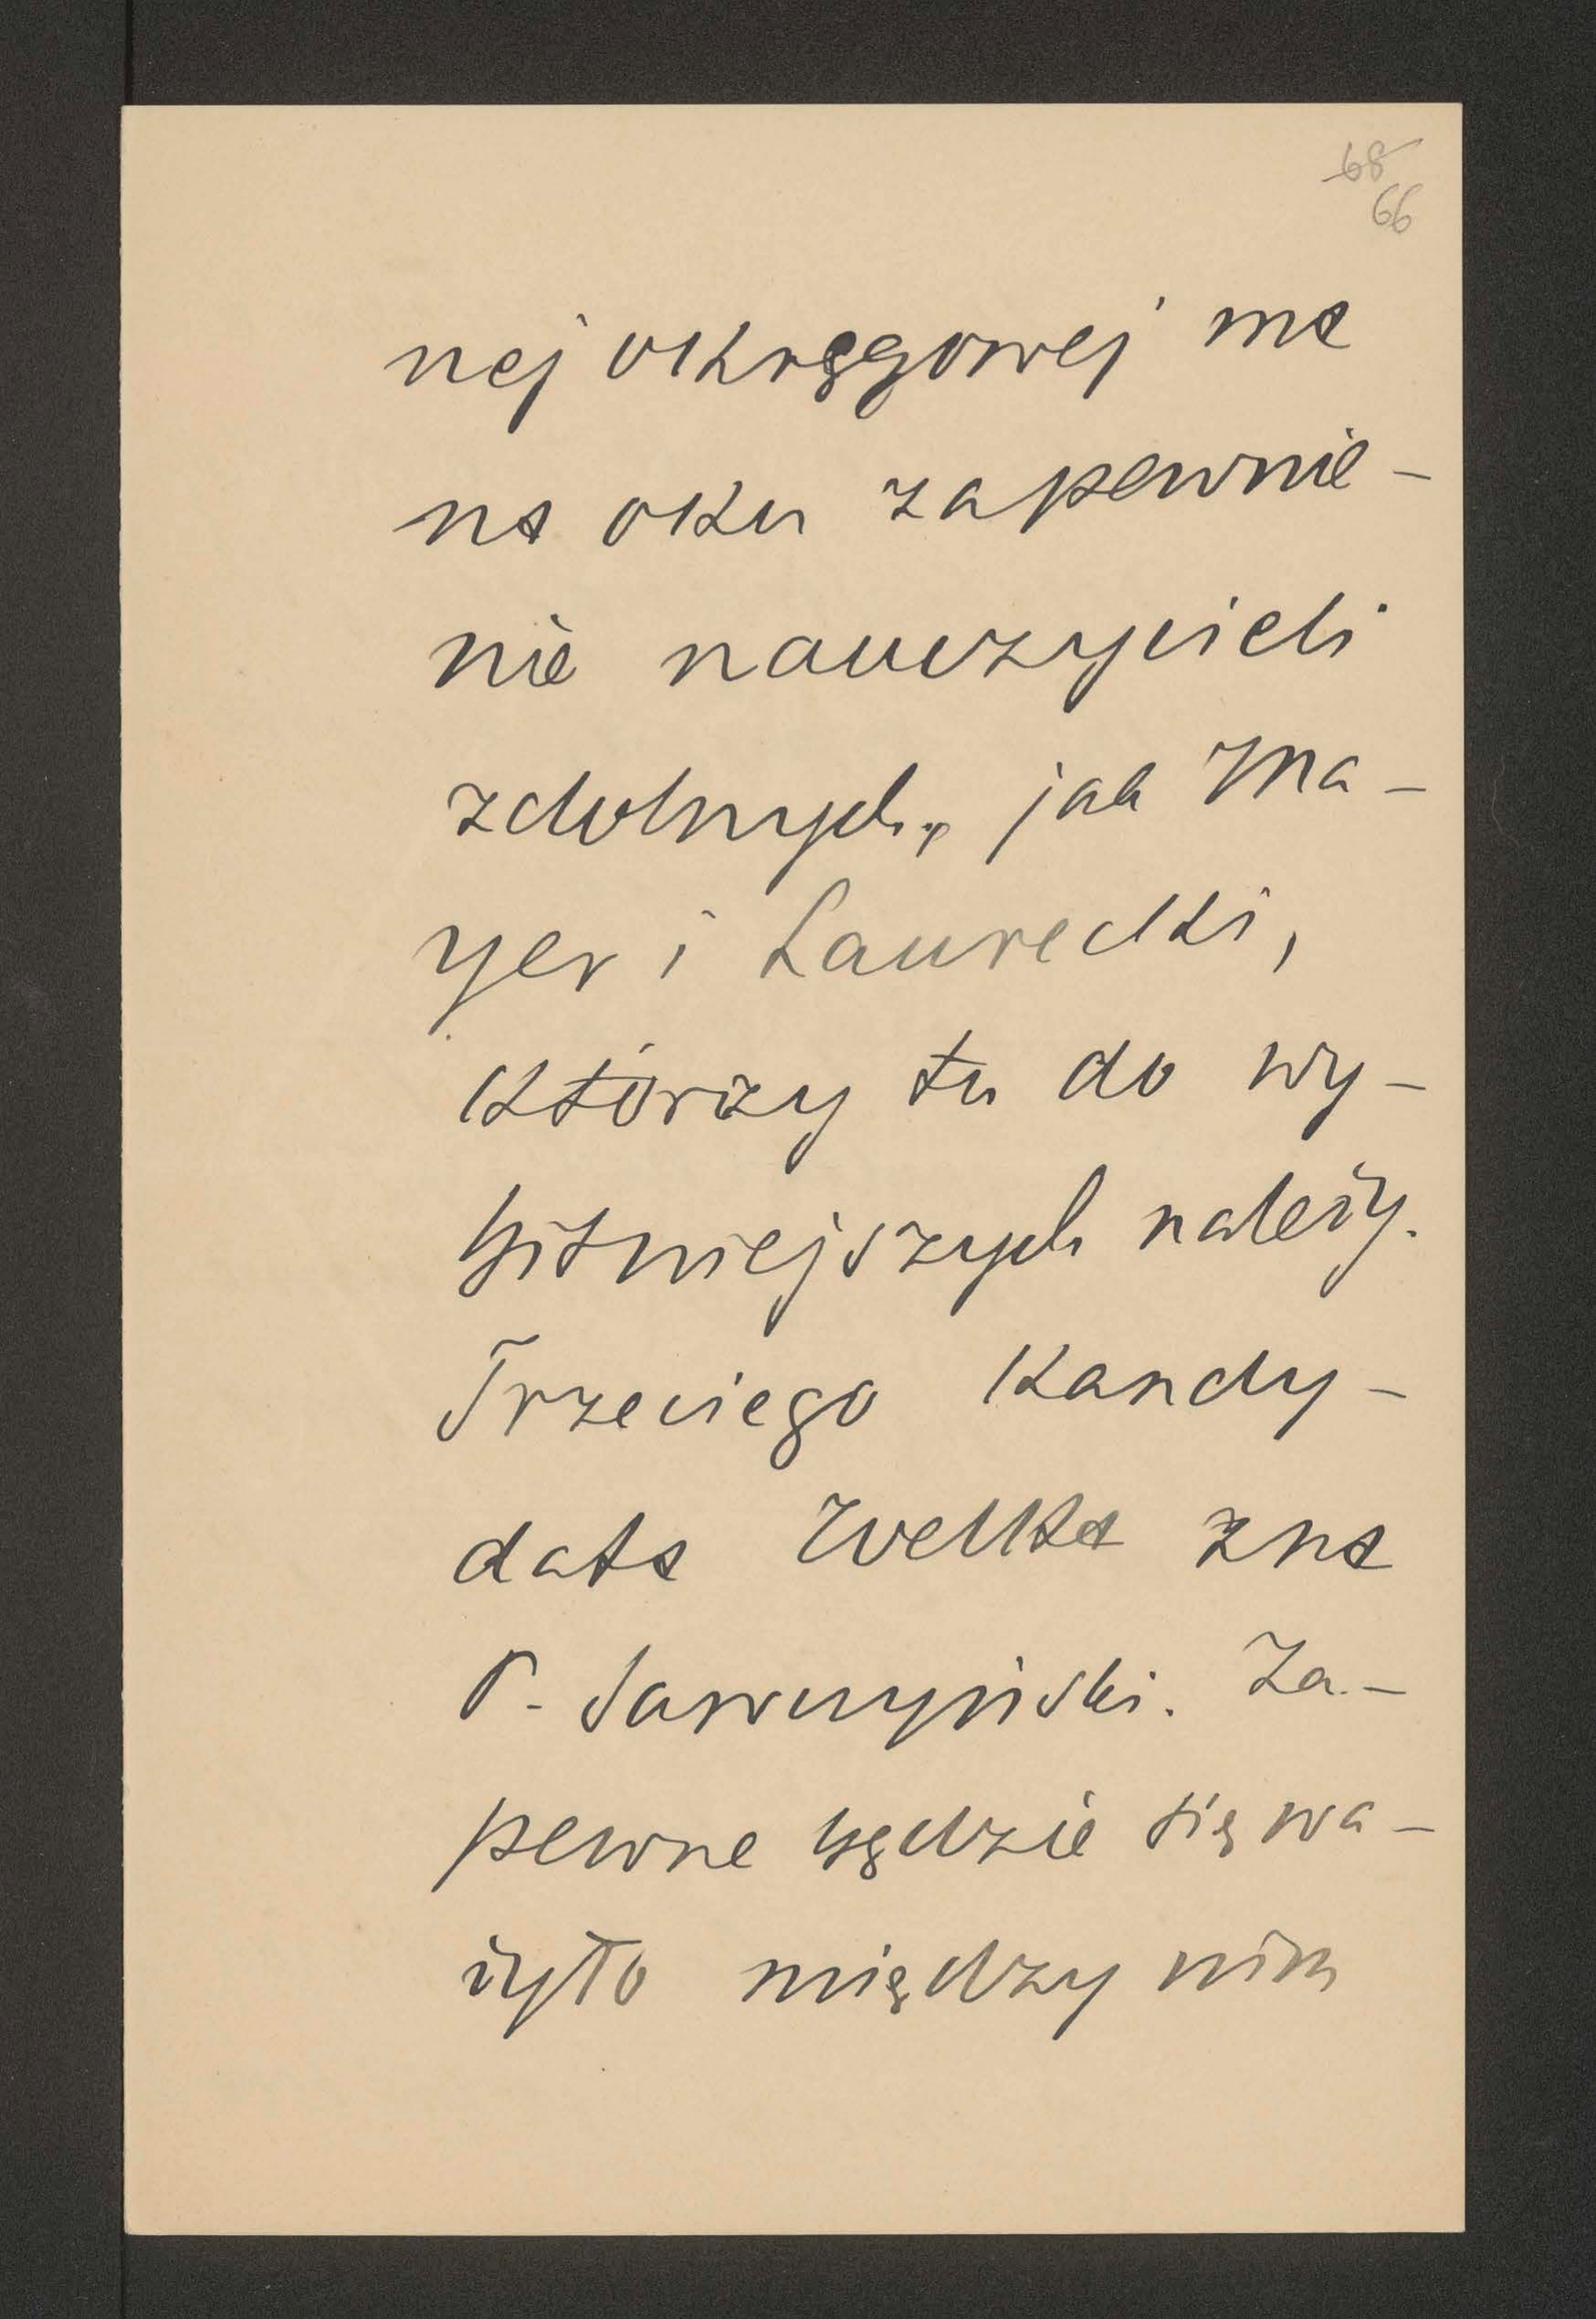 68
66
nej okręgowej ma
na oku zapewnie-
nie nauczycieli
zdolnych, jak Ma-
yer i Laurecki,
którzy tu do wy-
bitniejszych należy.
Trzeciego kandy-
data Welka zna
P. Sawczyński. Za-
pewne będzie się wa-
żyło między nim